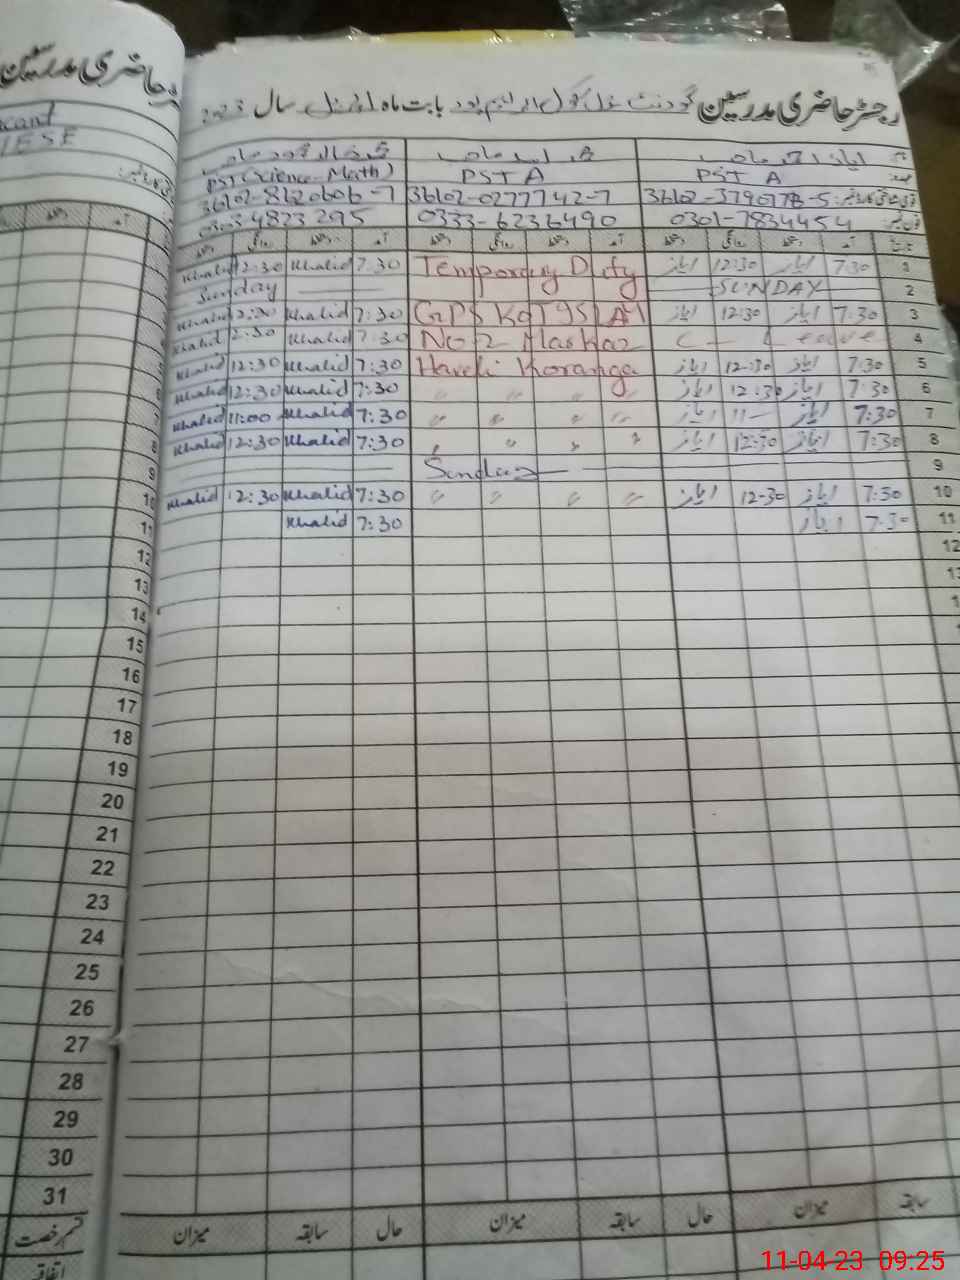 رجسٹر حاضری مدرسین
رجسٹر حاضری مدرسین گورنمنٹ سکول ابراہیم پور بابت ماہ اپریل سال 2023
PST A PST A PST (Science-Math)
36102-3790778-5 36102-0277742-7 36102-8120606-7
0301-7834454 0333-6236490 0303 4823295
تاریخ آمد دستخط روانگی دستخط آمد دستخط روانگی دستخط آمد دستخط روانگی دستخط
1 7:30 ایاز 12:30 ایاز Temporary Duty 7:30 Khalid 12:30 Khalid
2 SUNDAY Sunday
3 7:30 ایاز 12:30 ایاز GPS Kot 7:30 Khalid 12:30 Khalid
4 C — Leave No 2 Markaz 7:30 Khalid 2:30 Khalid
5 7:30 ایاز 12-30 ایاز Haveli Koranga 7:30 Khalid 12:30 Khalid
6 7:30 ایاز 12-30 ایاز " " " " 7:30 Khalid 12:30 Khalid
7 7:30 ایاز 11— ایاز " " " " 7:30 Khalid 11:00 Khalid
8 7:30 ایاز 12:30 ایاز " " " " 7:30 Khalid 12:30 Khalid
9 Sunday
10 7:30 ایاز 12-30 ایاز " " " " 7:30 Khalid 12:30 Khalid
11 7:30 ایاز 7:30 Khalid
12
13
14
15
16
17
18
19
20
21
22
23
24
25
26
27
28
29
30
31
سابقہ میزان حال سابقہ میزان حال سابقہ میزان قسم رخصت
اتفاقیہ
11-04-23 09:25